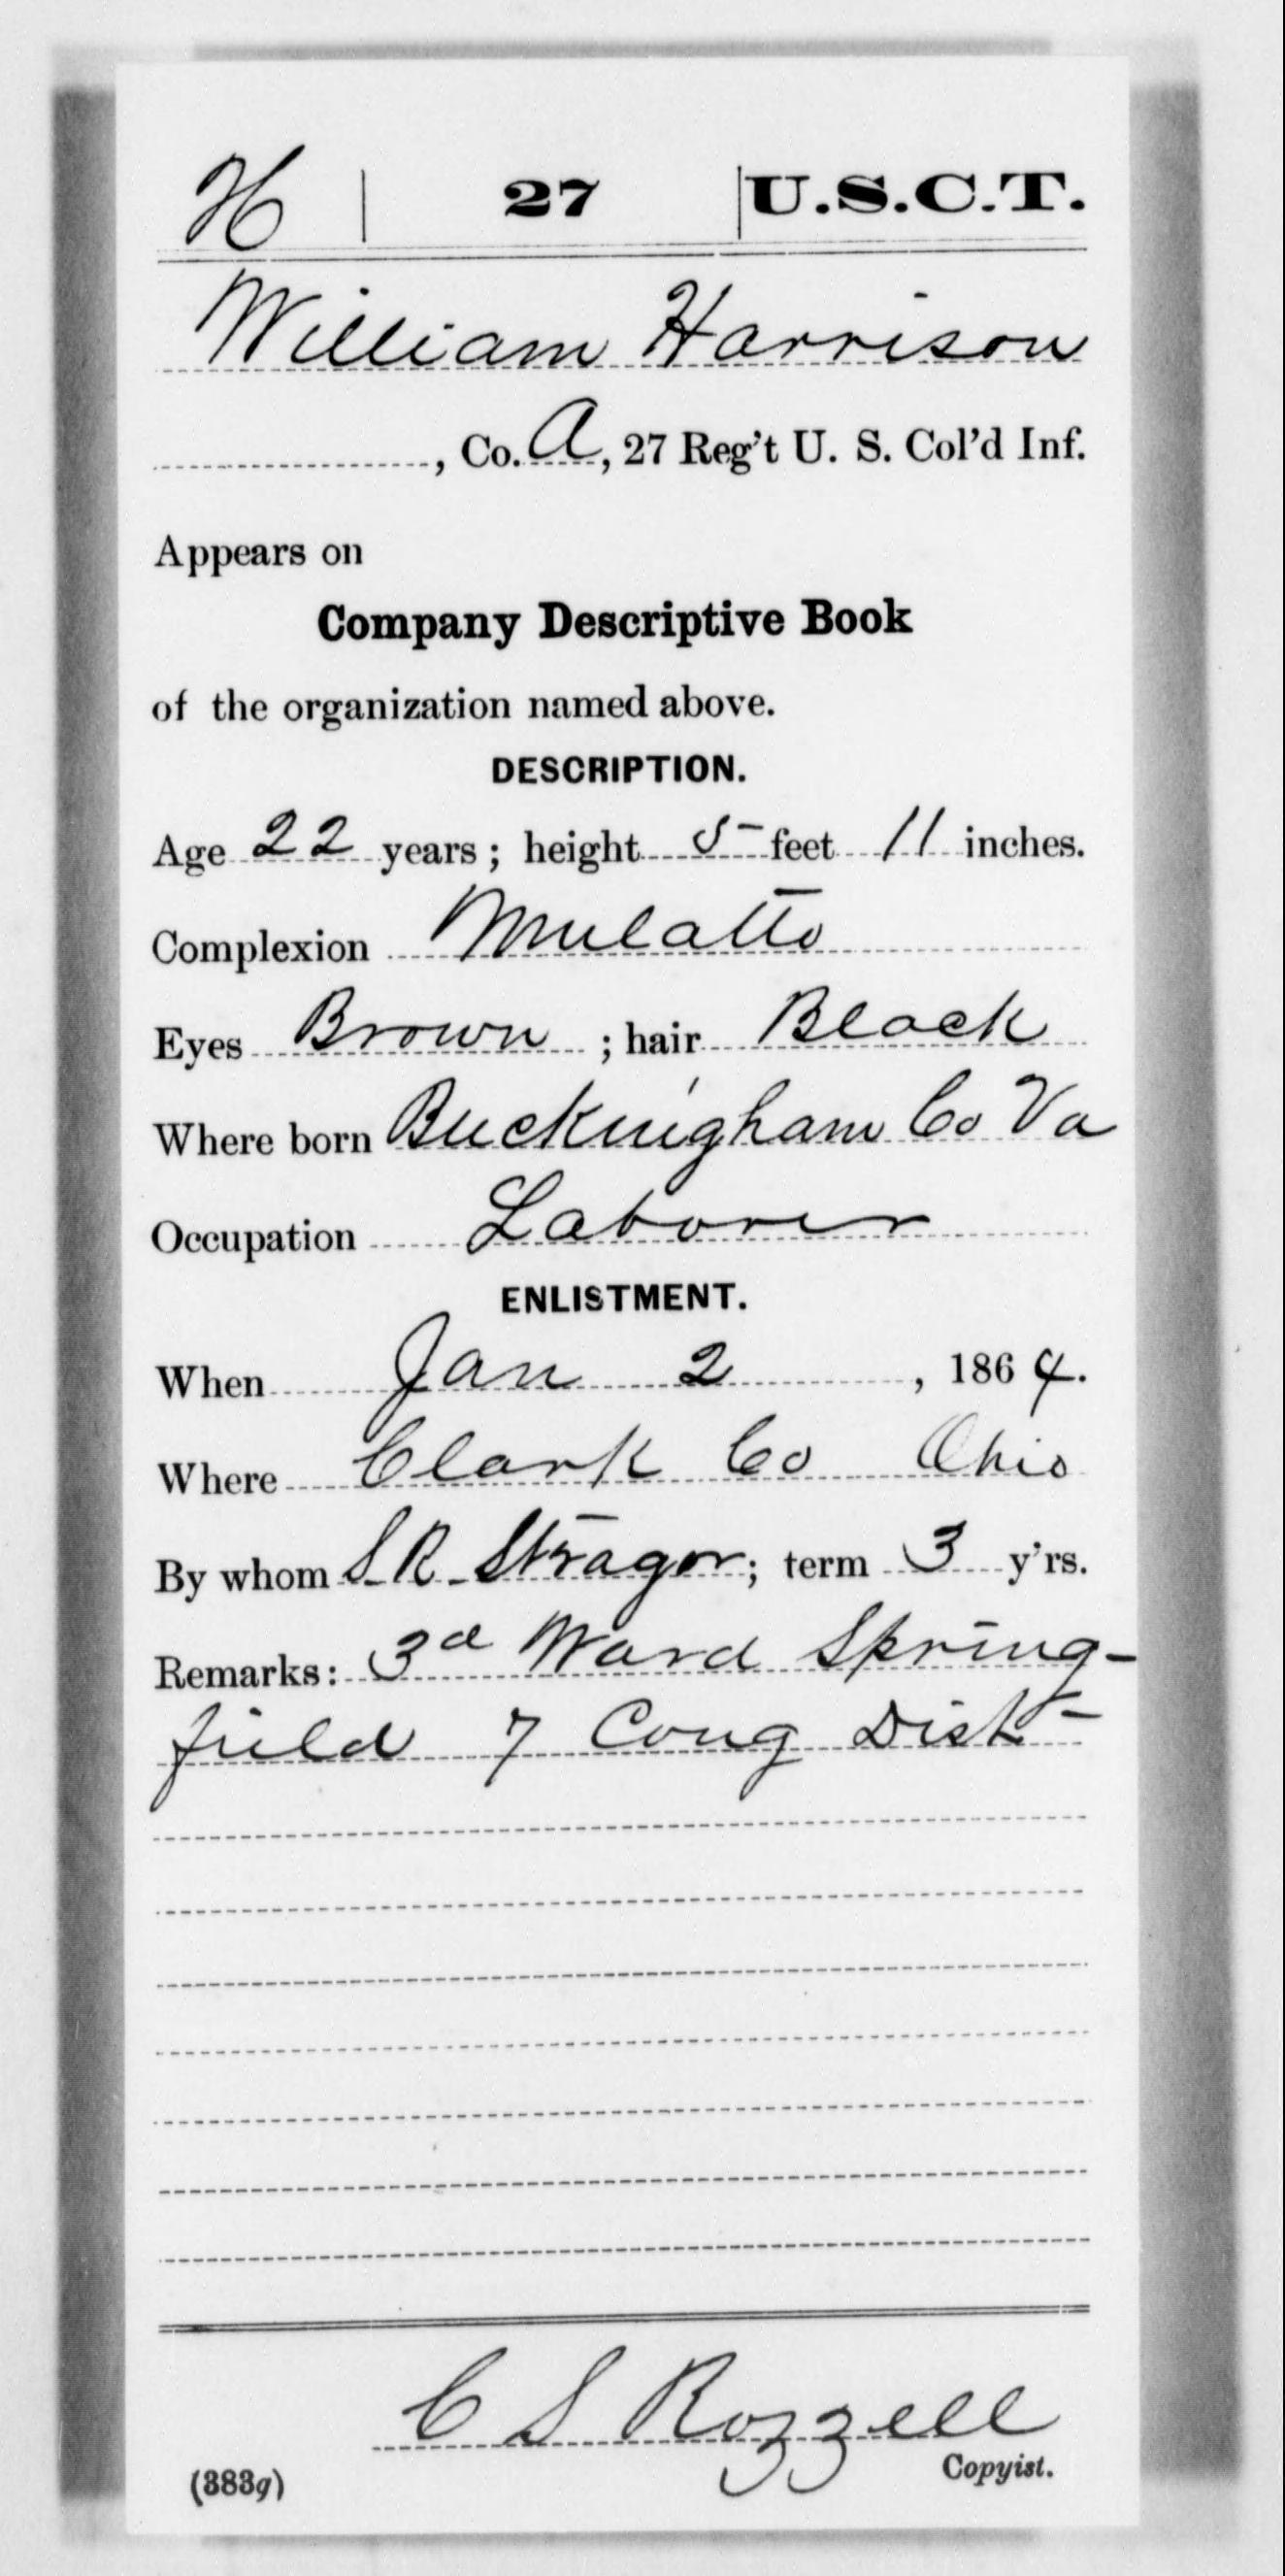 H | 27 | U.S.C.T.
William Harrison
, Co. A, 27 Reg't U. S. Col'd Inf.
Appears on
Company Descriptive Book
of the organization named above.
DESCRIPTION.
Age 22 years; height 5 feet 11 inches.
Complexion Mulatto
Eyes Brown ; hair Black
Where born Buckingham Co Va
Occupation Laborer
ENLISTMENT.
When Jan 2, 1864.
Where Clark Co Ohio
By whom S. R. Stragor; term 3 y'rs.
Remarks: 3d Ward Spring-
field 7 Cong Dist
C S Rozzell
(383g) Copyist.